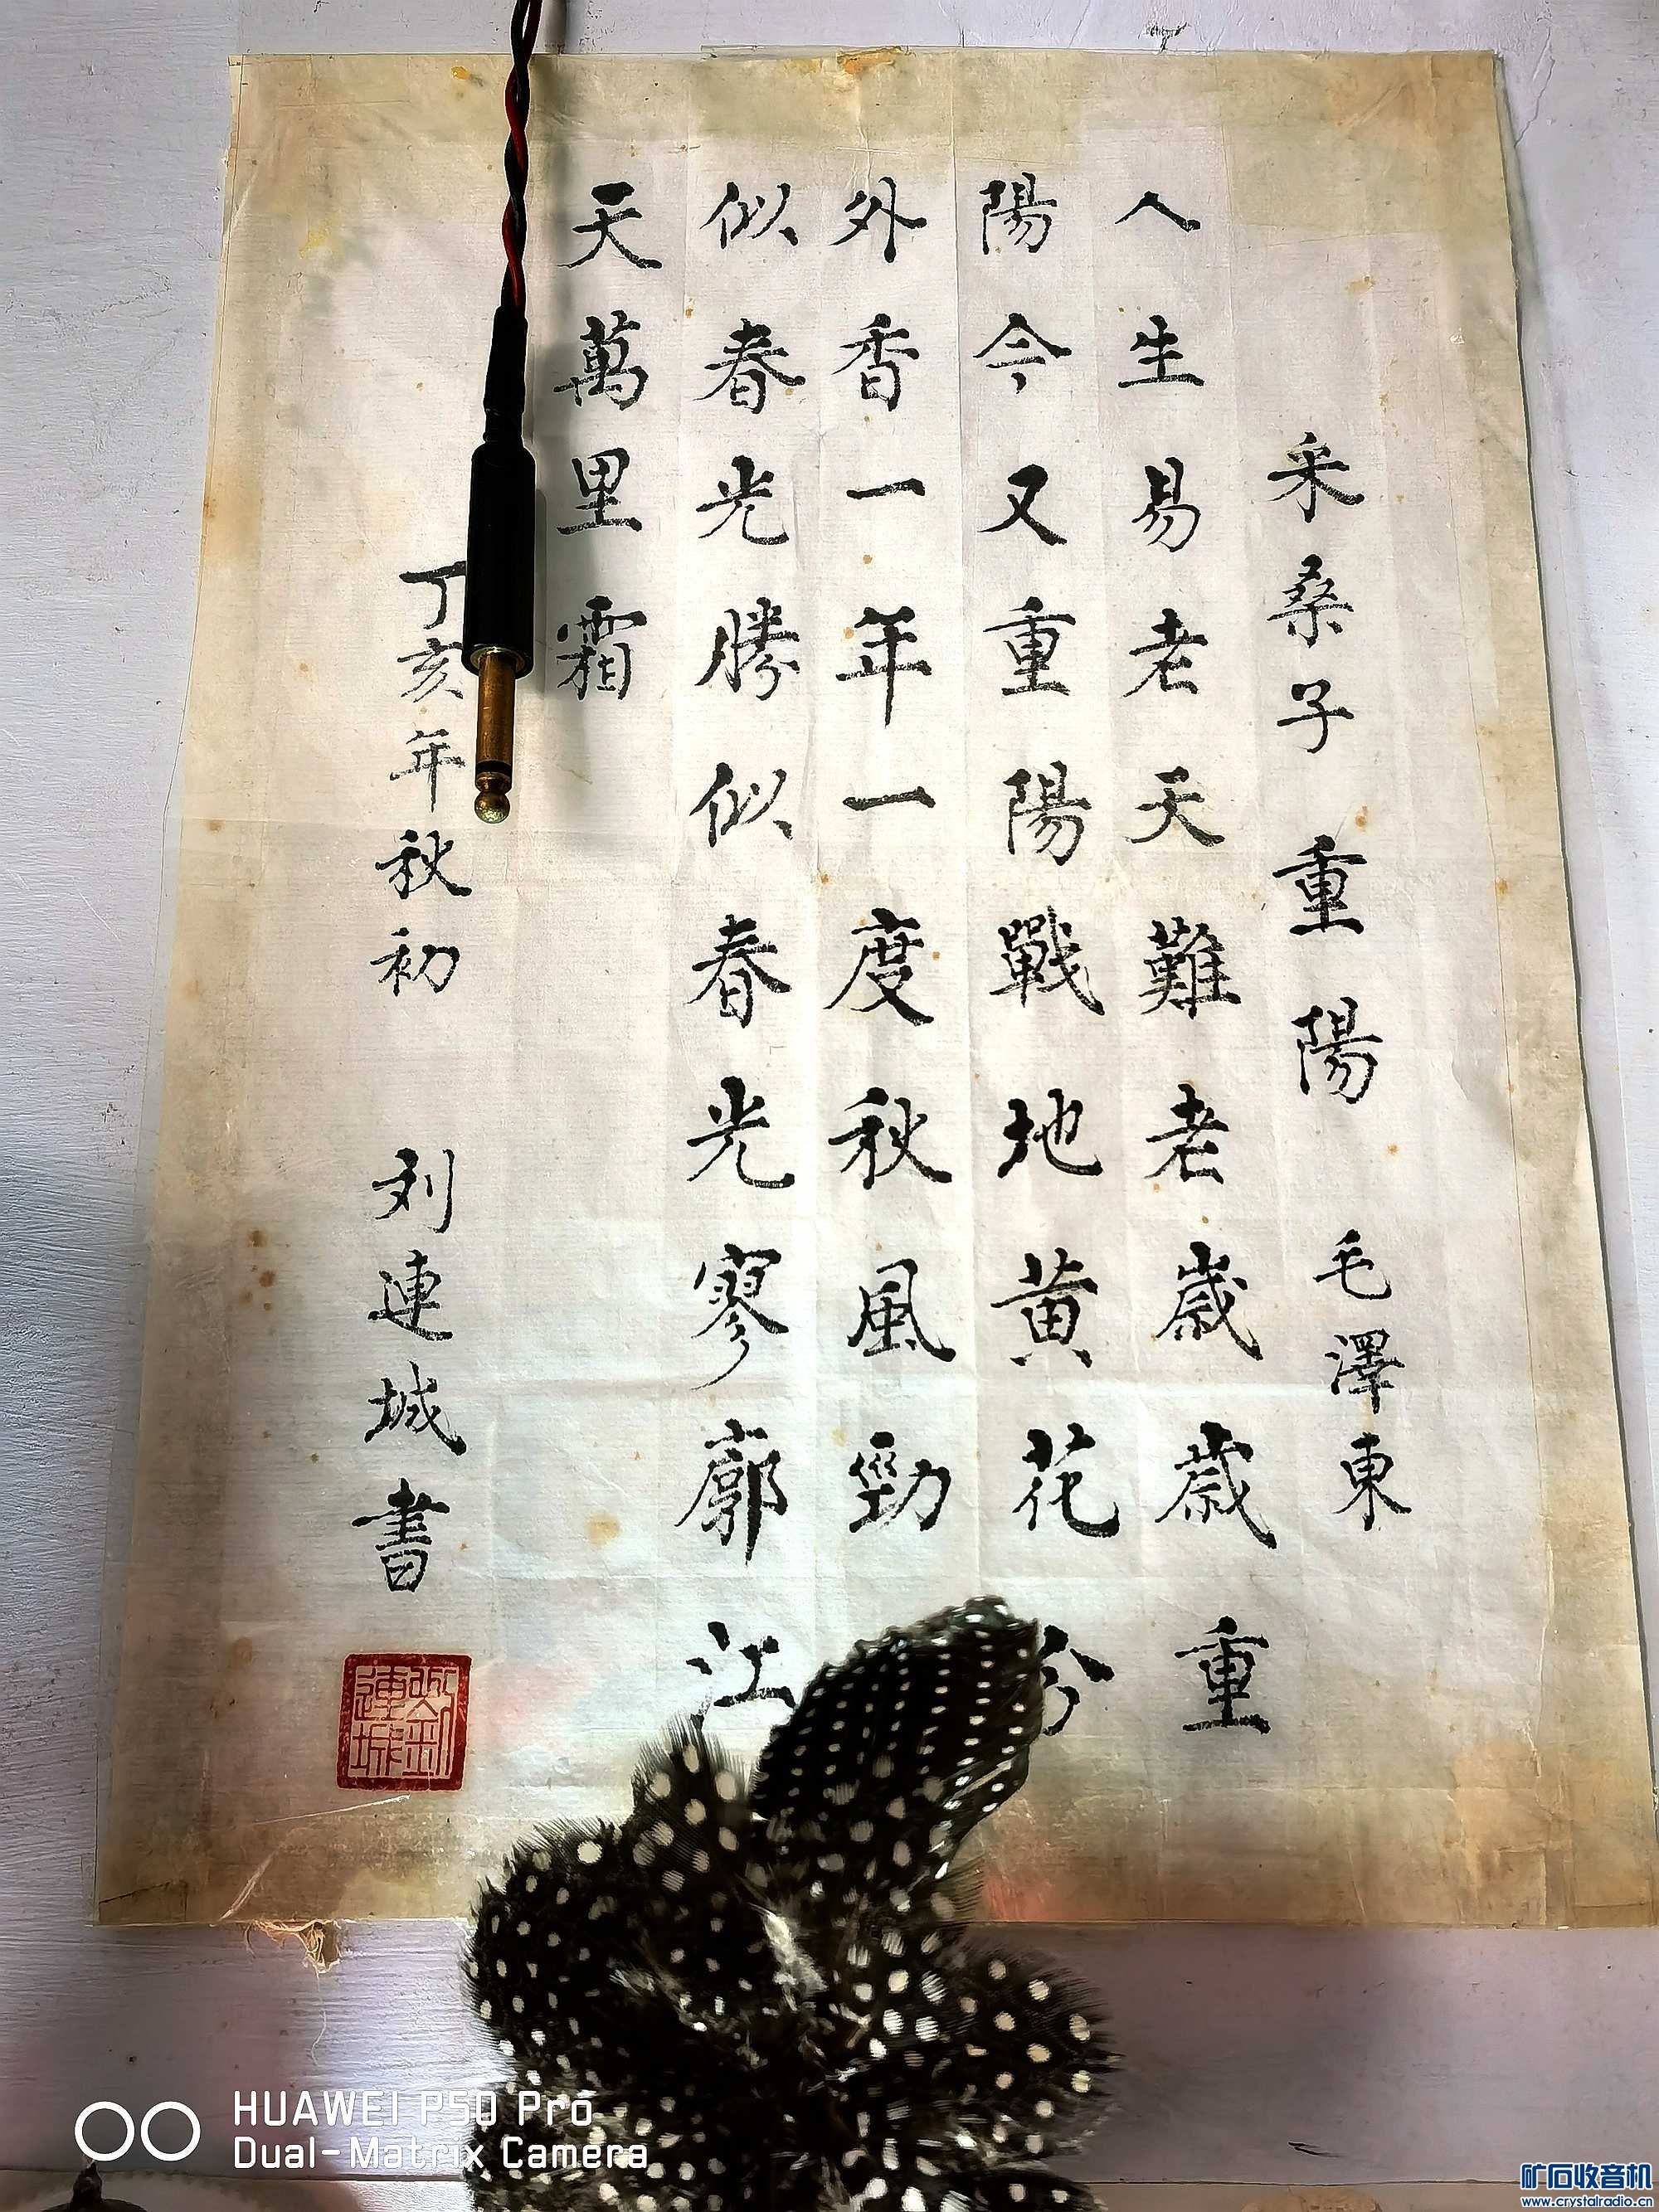 采桑子 重陽 毛澤東
人生易老天難老歲歲重
陽今又重陽戰地黄花分
外香一年一度秋風勁
似春光勝似春光寥廓江
天萬里霜
丁亥年秋初 刘連城書
劉連城
HUAWEI P50 Pro
Dual-Matrix Camera
矿石收音机
www.crystalradio.cn